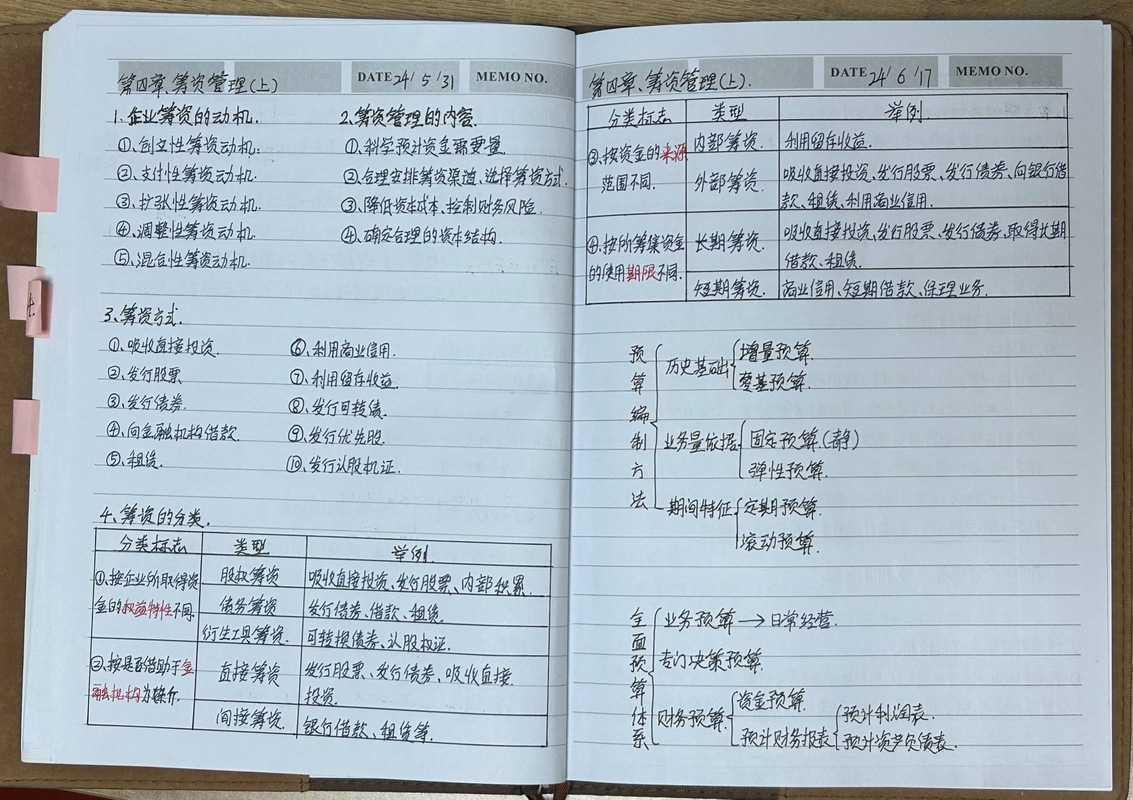 第四章、筹资管理(上)
DATE 24/5/31 MEMO NO.
1、企业筹资的动机.
①、创立性筹资动机.
②、支付性筹资动机.
③、扩张性筹资动机.
④、调整性筹资动机.
⑤、混合性筹资动机.
2、筹资管理的内容.
①、科学预计资金需要量.
②、合理安排筹资渠道、选择筹资方式.
③、降低资本成本、控制财务风险.
④、确定合理的资本结构.
3、筹资方式.
①、吸收直接投资.
②、发行股票.
③、发行债券.
④、向金融机构借款.
⑤、租赁.
⑥、利用商业信用.
⑦、利用留存收益.
⑧、发行可转债.
⑨、发行优先股.
⑩、发行认股权证.
4、筹资的分类.
分类标志 类型 举例.
①、按企业所取得资
金的权益特性不同.
股权筹资 吸收直接投资、发行股票、内部积累.
债务筹资 发行债券、借款、租赁.
衍生工具筹资. 可转换债券、认股权证.
②、按是否借助于金
融机构为媒介.
直接筹资 发行股票、发行债券、吸收直接
投资.
间接筹资. 银行借款、租赁等.
第四章、筹资管理(上).
DATE 24/6/17 MEMO NO.
分类标志 类型 举例.
③、按资金的来源
范围不同.
内部筹资. 利用留存收益.
外部筹资. 吸收直接投资、发行股票、发行债券、向银行借
款、租赁、利用商业信用.
④、按所筹集资金
的使用期限不同.
长期筹资. 吸收直接投资、发行股票、发行债券、取得长期
借款、租赁.
短期筹资. 商业信用、短期借款、保理业务.
预算编制方法
历史基础
增量预算.
零基预算.
业务量依据
固定预算(静)
弹性预算.
期间特征
定期预算.
滚动预算.
全面预算体系
业务预算→日常经营.
专门决策预算.
财务预算
资金预算.
预计财务报表
预计利润表.
预计资产负债表.